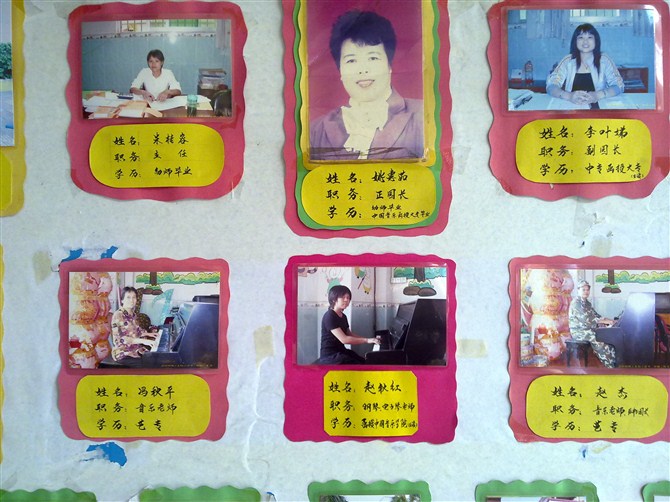 姓名：朱桂容
职务：主 任
学历：幼师毕业
姓名：姚惠茹
职务：正园长
学历：幼师毕业
中国音乐函授大学毕业
姓名：李叶娣
职务：副园长
学历：中专函授大专
姓名：冯秋平
职务：音乐老师
学历：艺专
姓名：赵秋红
职务：钢琴、电子琴老师
学历：
姓名：赵 杰
职务：音乐老师
学历：艺专